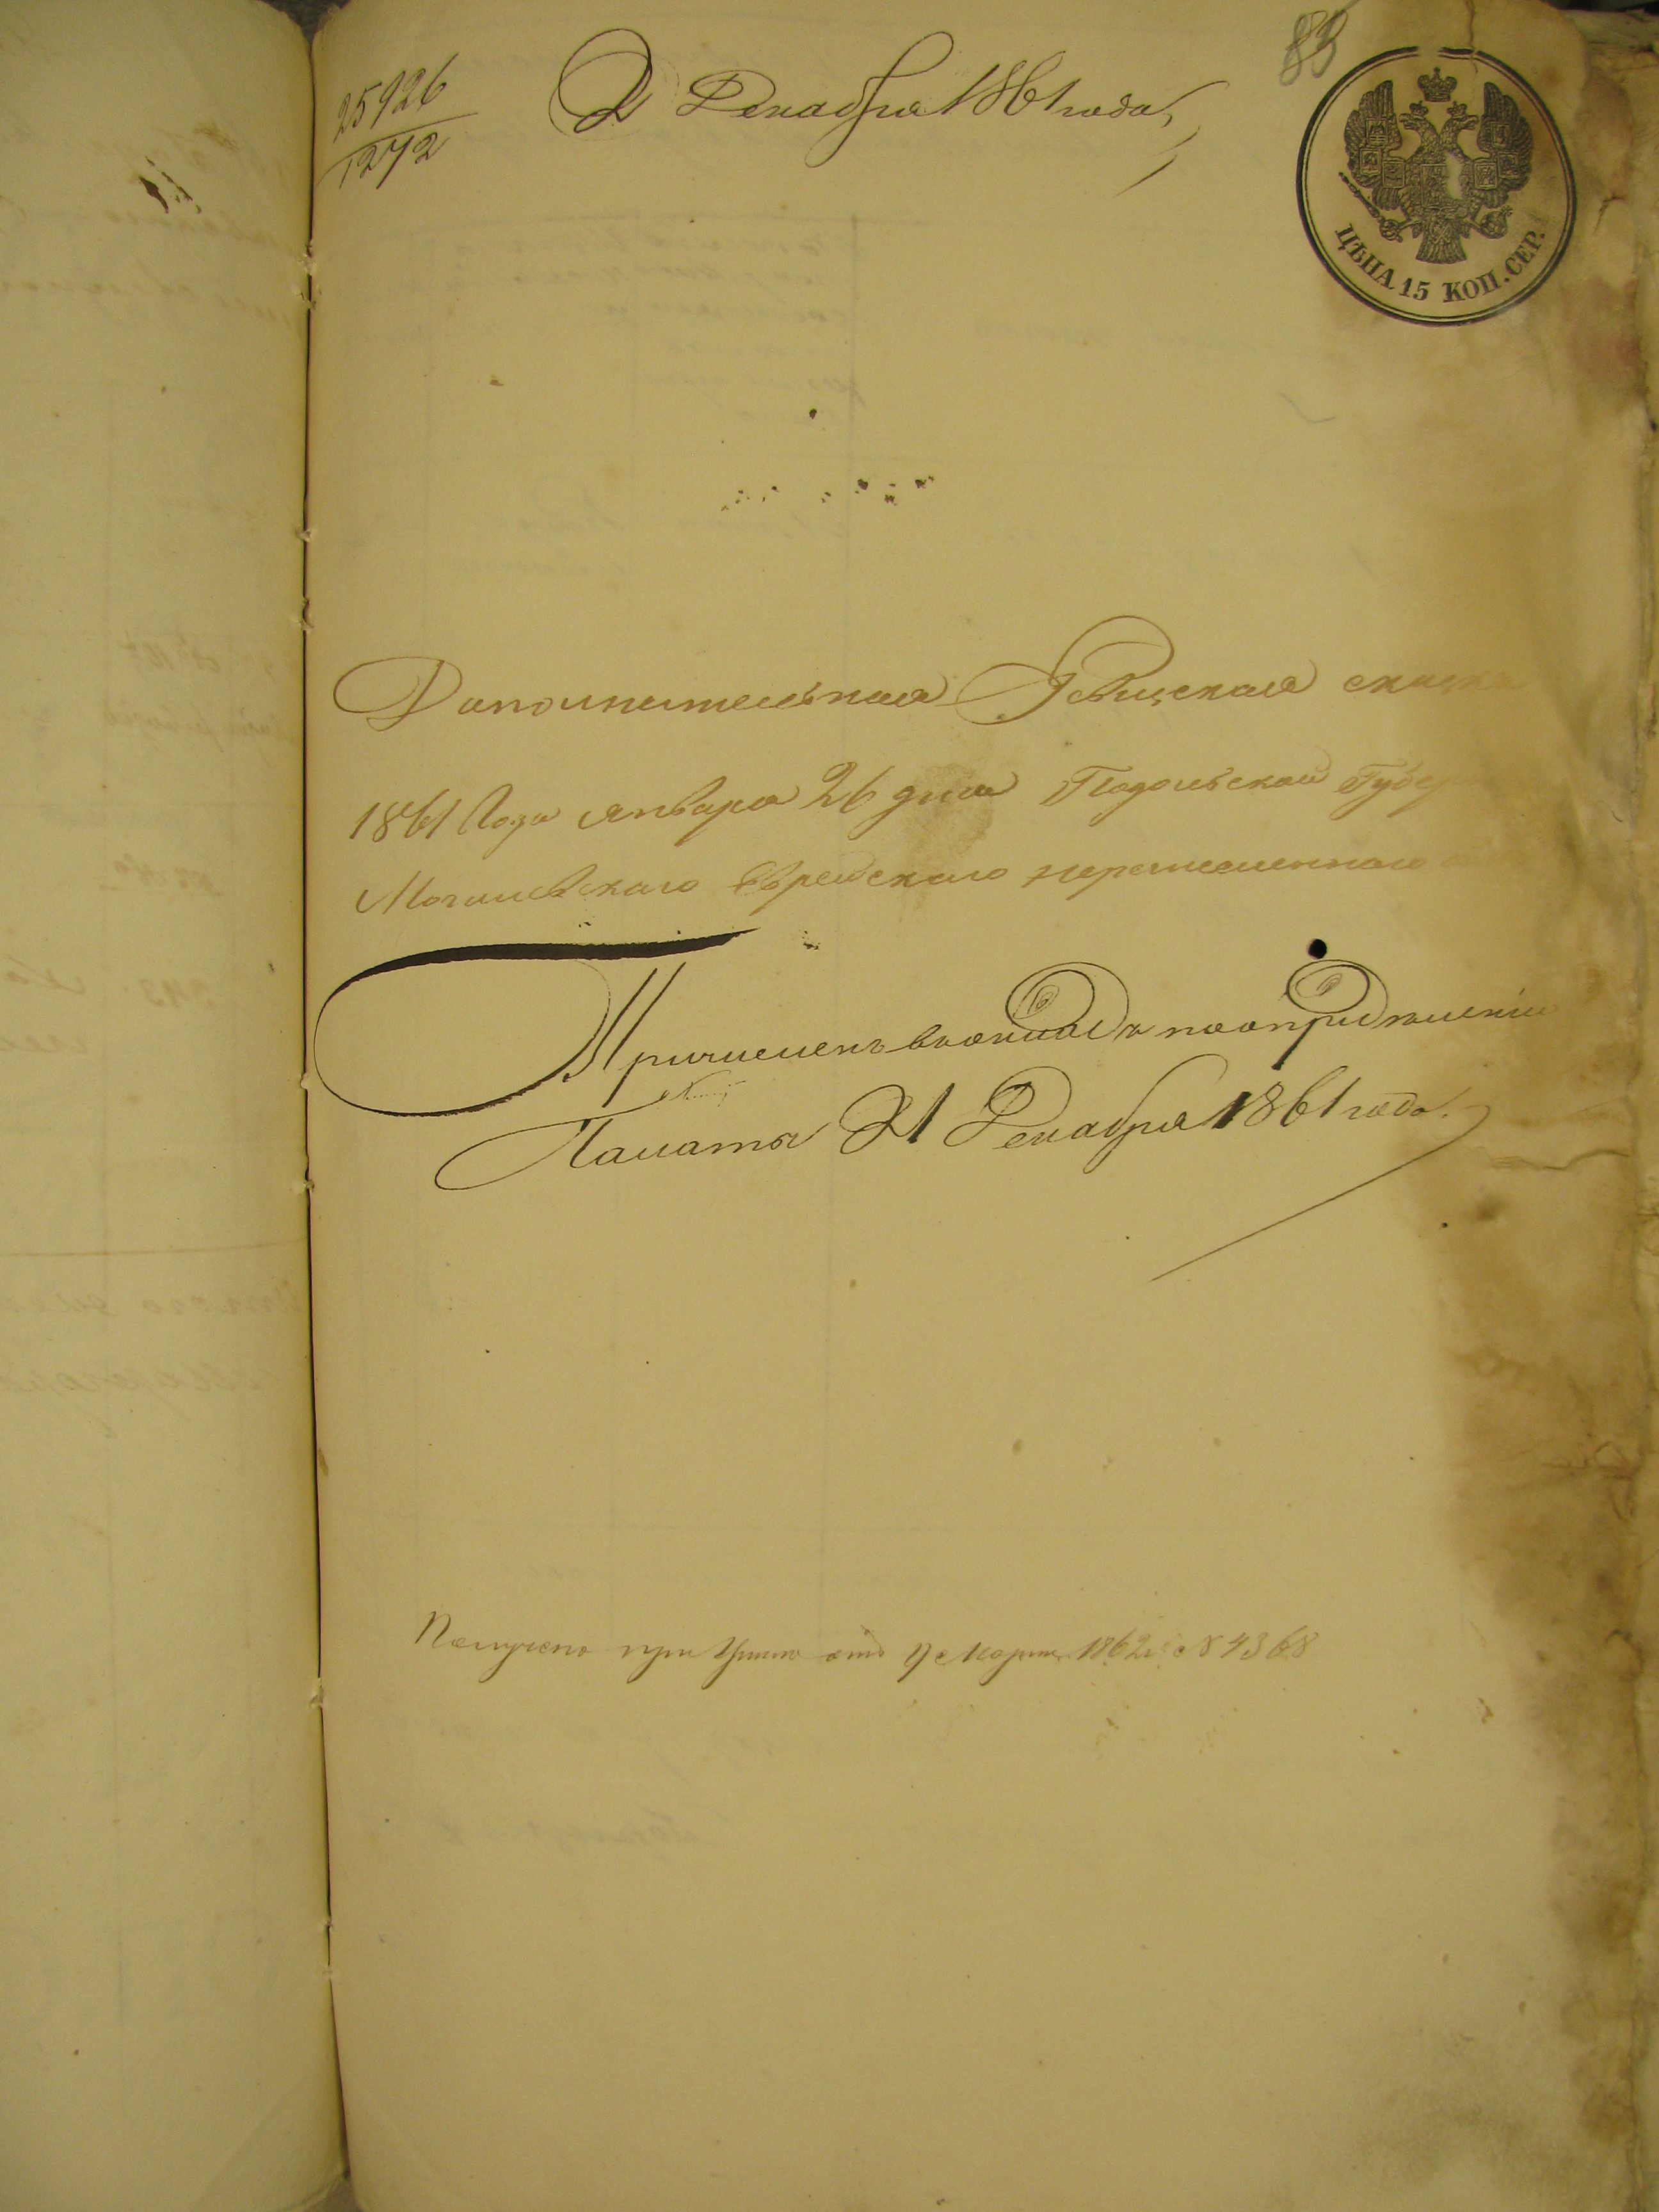 83
25926
1272
2 Декабря 1861 года
ЦѢНА 15 КОП. СЕР.
Дополнительная Ревизская сказка
1861 Года Января 26 дня Подольской Губер
Могилевскаго Еврейскаго
Причислен по определению
Палаты 21 Декабря 1861 года.
Получено при Указе отъ 9 Марта 1862 г. № 4368